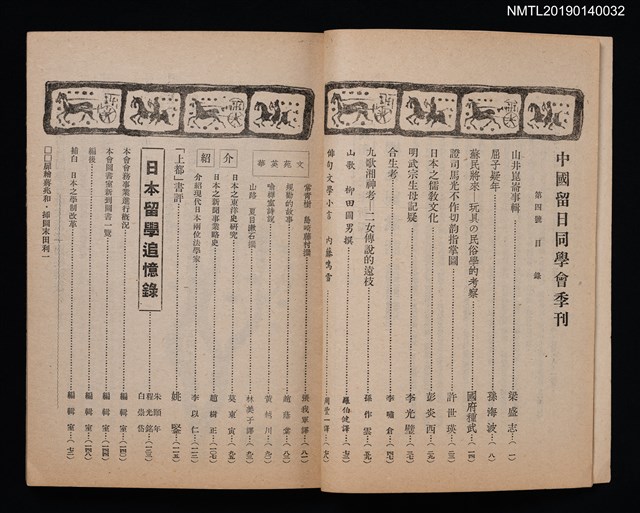 NMTL20190140032
中國留日同學會季刊
第四號 目錄
山井崑崙事輯 梁盛志 (一)
屈子疑年 孫海波 (八)
蘇民將來 玩具の民俗學的考察 國府種武 (一四)
證司馬光不作切韵指掌圖 許世瑛
日本之儒教文化 彭炎西
明武宗生母記疑 李光璧
合生考 李嘯倉
九歌湘神考—二女傳說的遠枝 孫作雲
山歌 柳田國男撰 羅伯健譯
俳句文學小言 內藤鳴雪 周豐一譯
文苑英華
常青樹 島崎藤村撰 張我軍譯 (八一)
緩動的故事
喻樺室詩說 黃桃川
山路 夏目漱石撰 林美子譯
介紹
日本之東洋史研究 莫東寅
日本之新聞事業略史 趙樹正
介紹現代日本兩位法學家 李以仁 (一一三)
「上都」書評 姚鑒 (一一五)
日本留學追憶錄
朱頤年
程光銘
白崇岱
本會會務事業進行概況 編輯室
本會圖書室新到圖書一覽 編輯室
編後 編輯室
補白 日本之學制改革 編輯室
□□扉繪蔣兆和，插圖末田利一